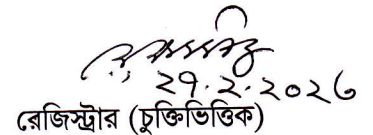 ২৭.২.২০২৬
রেজিস্ট্রার (চুক্তিভিত্তিক)